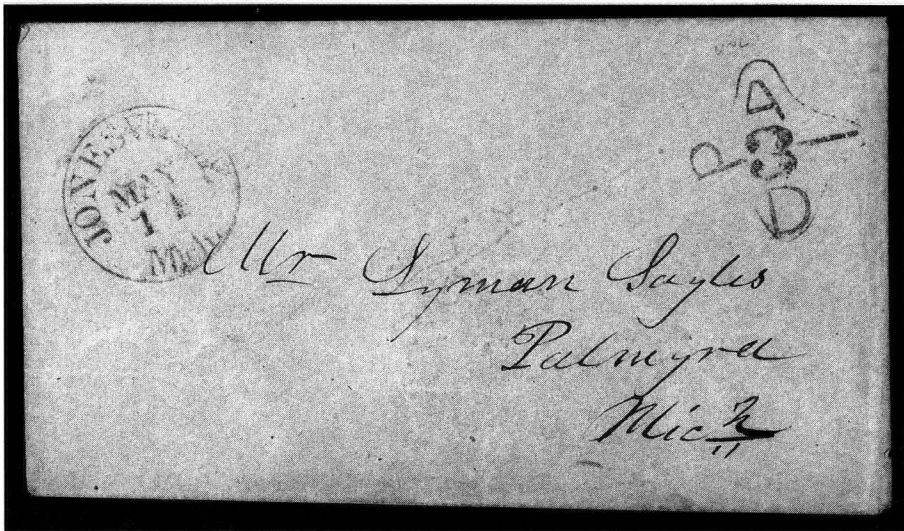 JONESVILLE
MAY
11
Mich.
PAID
3
Mr Lyman Sayles
Palmyra
Mich